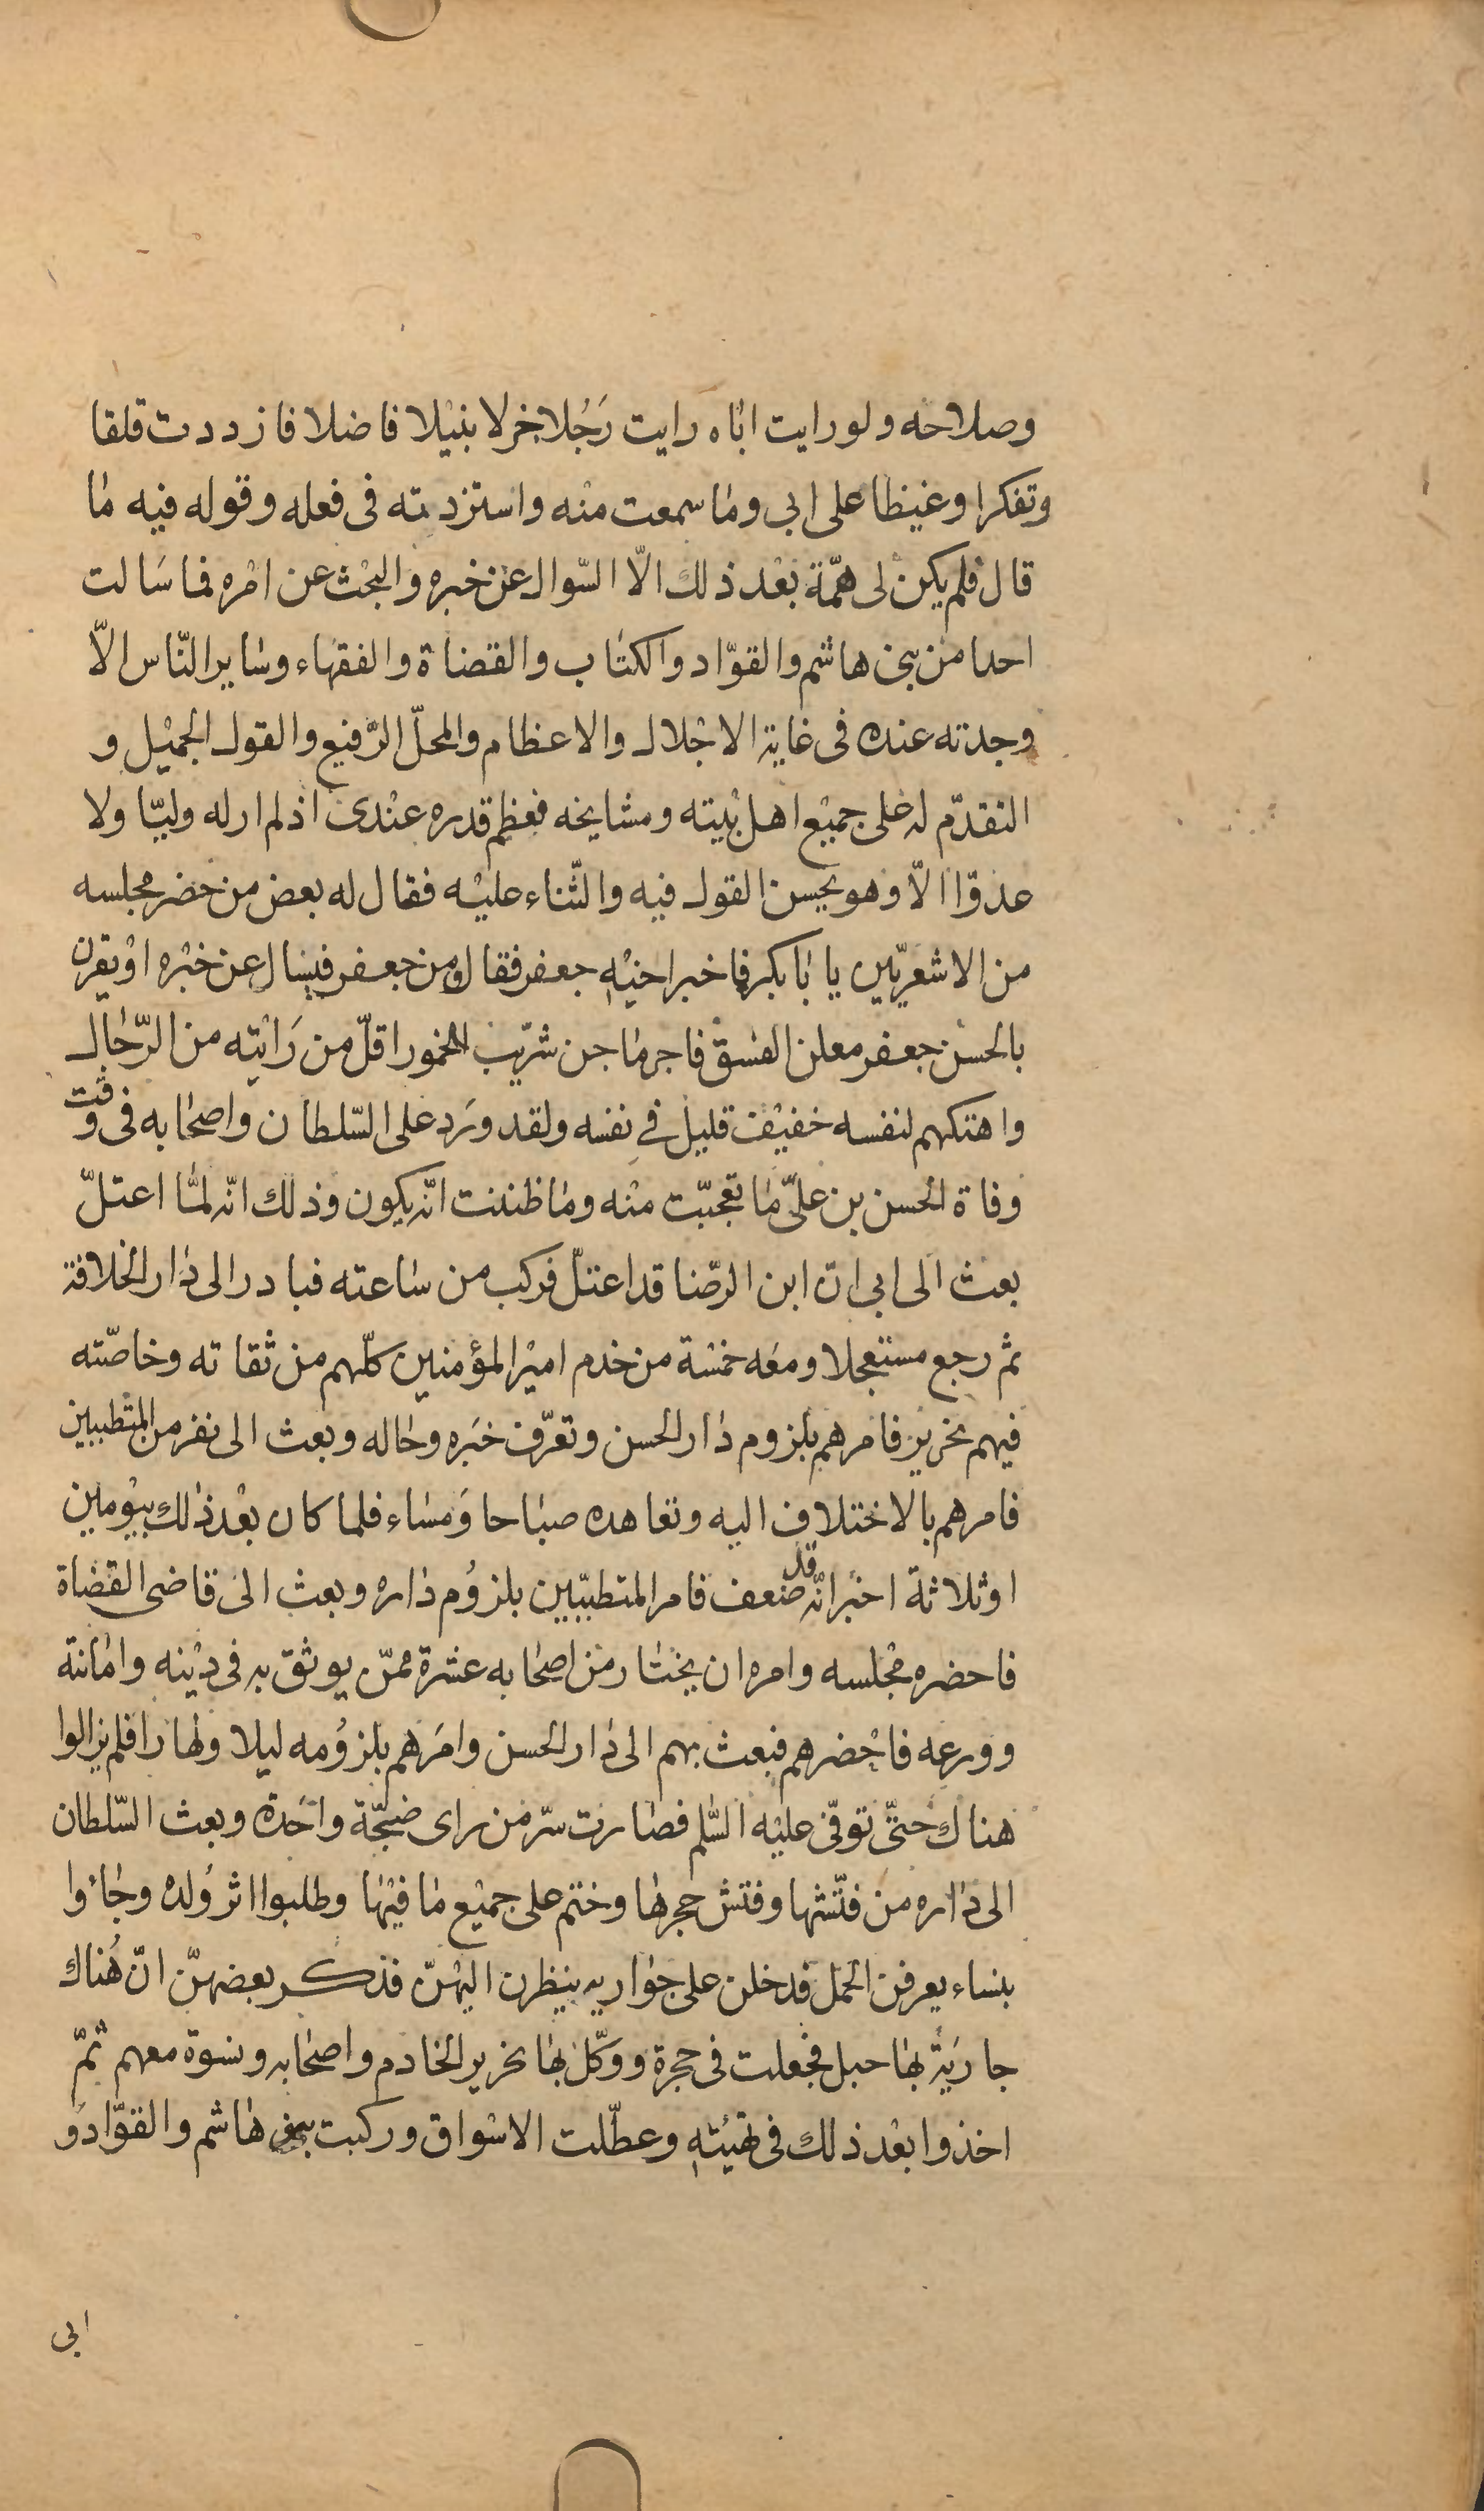 وصلاحه ولو رايت اباه رايت رَجُلا جزلا بنيْلا فاضلا فازددت قلقا
وتفكرا وغيظا على ابى وما سمعت منْه واستزدته فى فعله وقوله فيه ما
قال فلم يكنْ لى همّة بعْد ذلك الّا السّوال عنْ خبره والبحْث عن امْره فما سَالت
احدا منْ بنى هاشم والقوّاد والكتاب والقضاة والفقهاء وسايرالنّاس الّا
وجدته عنده فى غاية الاجْلال والاعظام والمحلّ الرّفيع والقول الجميْل و
التقدّم له على جميْع اهل بيْته ومشايخه فعظم قدره عنْدى اذ لم ار له وليّا ولا
عدوّا الّا وهو يحسن القول فيه والثّناء عليْه فقال له بعض من حضر مجلسه
من الاشعريّين يا ابا بكر فما خبر اخيْه جعفر فقال ومن جعفر فيسال عن خبْره اوْ يقرن
بالحسن جعفر معلن الفسْق فاجر ماجن شرّيب الخمور اقلّ من رَايْته من الرّجال
واهتكهم لنفسه خفيْف قليل فى نفسه ولقد ورَد على السّلطان واصحابه فى وقت
وفاة الحسن بن علىّ ما تعجّبت منْه وما ظننت انّه يكون وذلك انّه لمّا اعتلّ
بعث الى ابى انّ ابن الرّضا قد اعتلّ فركب من ساعته فبادر الى دار الخلافة
ثم رجع مستعجلا ومعَه خمسْة من خدم اميْر المؤمنين كلّهم من ثقاته وخاصّته
فيهم نحرير فامرهم بلزوم دار الحسن وتعرّف خبَره وحاله وبعث الى نفر من المتطببين
فامرهم بالاختلاف اليه وتعاهده صباحا وَمسَاء فلما كان بعْد ذلك بيوْمين
او ثلاثة اخبْر انّه قد ضعف فامر المتطبّبين بلزوُم داره وبعث الى قاضى القضاة
فاحضره مجْلسه وامره ان يختار من اصحابه عشرة ممّن يوثق به فى ديْنه وامانته
وورعه فاحْضرهم فبعث بهم الى دار الحسن وامَرهم بلزوُمه ليلا ونهارا فلم يزالوا
هناك حتّى توفّى عليْه السّلم فصارت سرّ من راى ضجّة واحَدة وبعث السّلطان
الى داره من فتّشها وفتش حجرها وختم على جميْع ما فيْها وطلبوا اثر وُلده وجاؤا
بنساء يعرفن الحمْل فدخلن على جواريه ينظرن اليهْنّ فذكر بعضهنّ انّ هُناك
جاريَة بها حبل فجعلت فى حجرة ووَكّل بها نحرير الخادم واصحابه ونسوة معهم ثمّ
اخذوا بعْد ذلك فى تهيئته وعطّلت الاسْواق وركبت بنى هاشم والقوّاد وَ
ابى